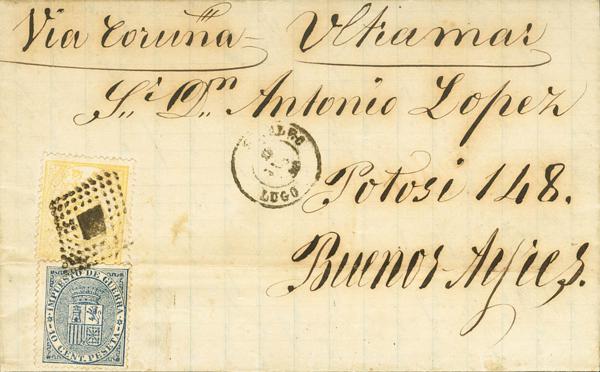 Via Coruña Ultramar
Sr. Dn. Antonio Lopez
Potosi 148.
Buenos Ayres.
LUGO
IMPUESTO DE GUERRA
10 CENT. PESETA